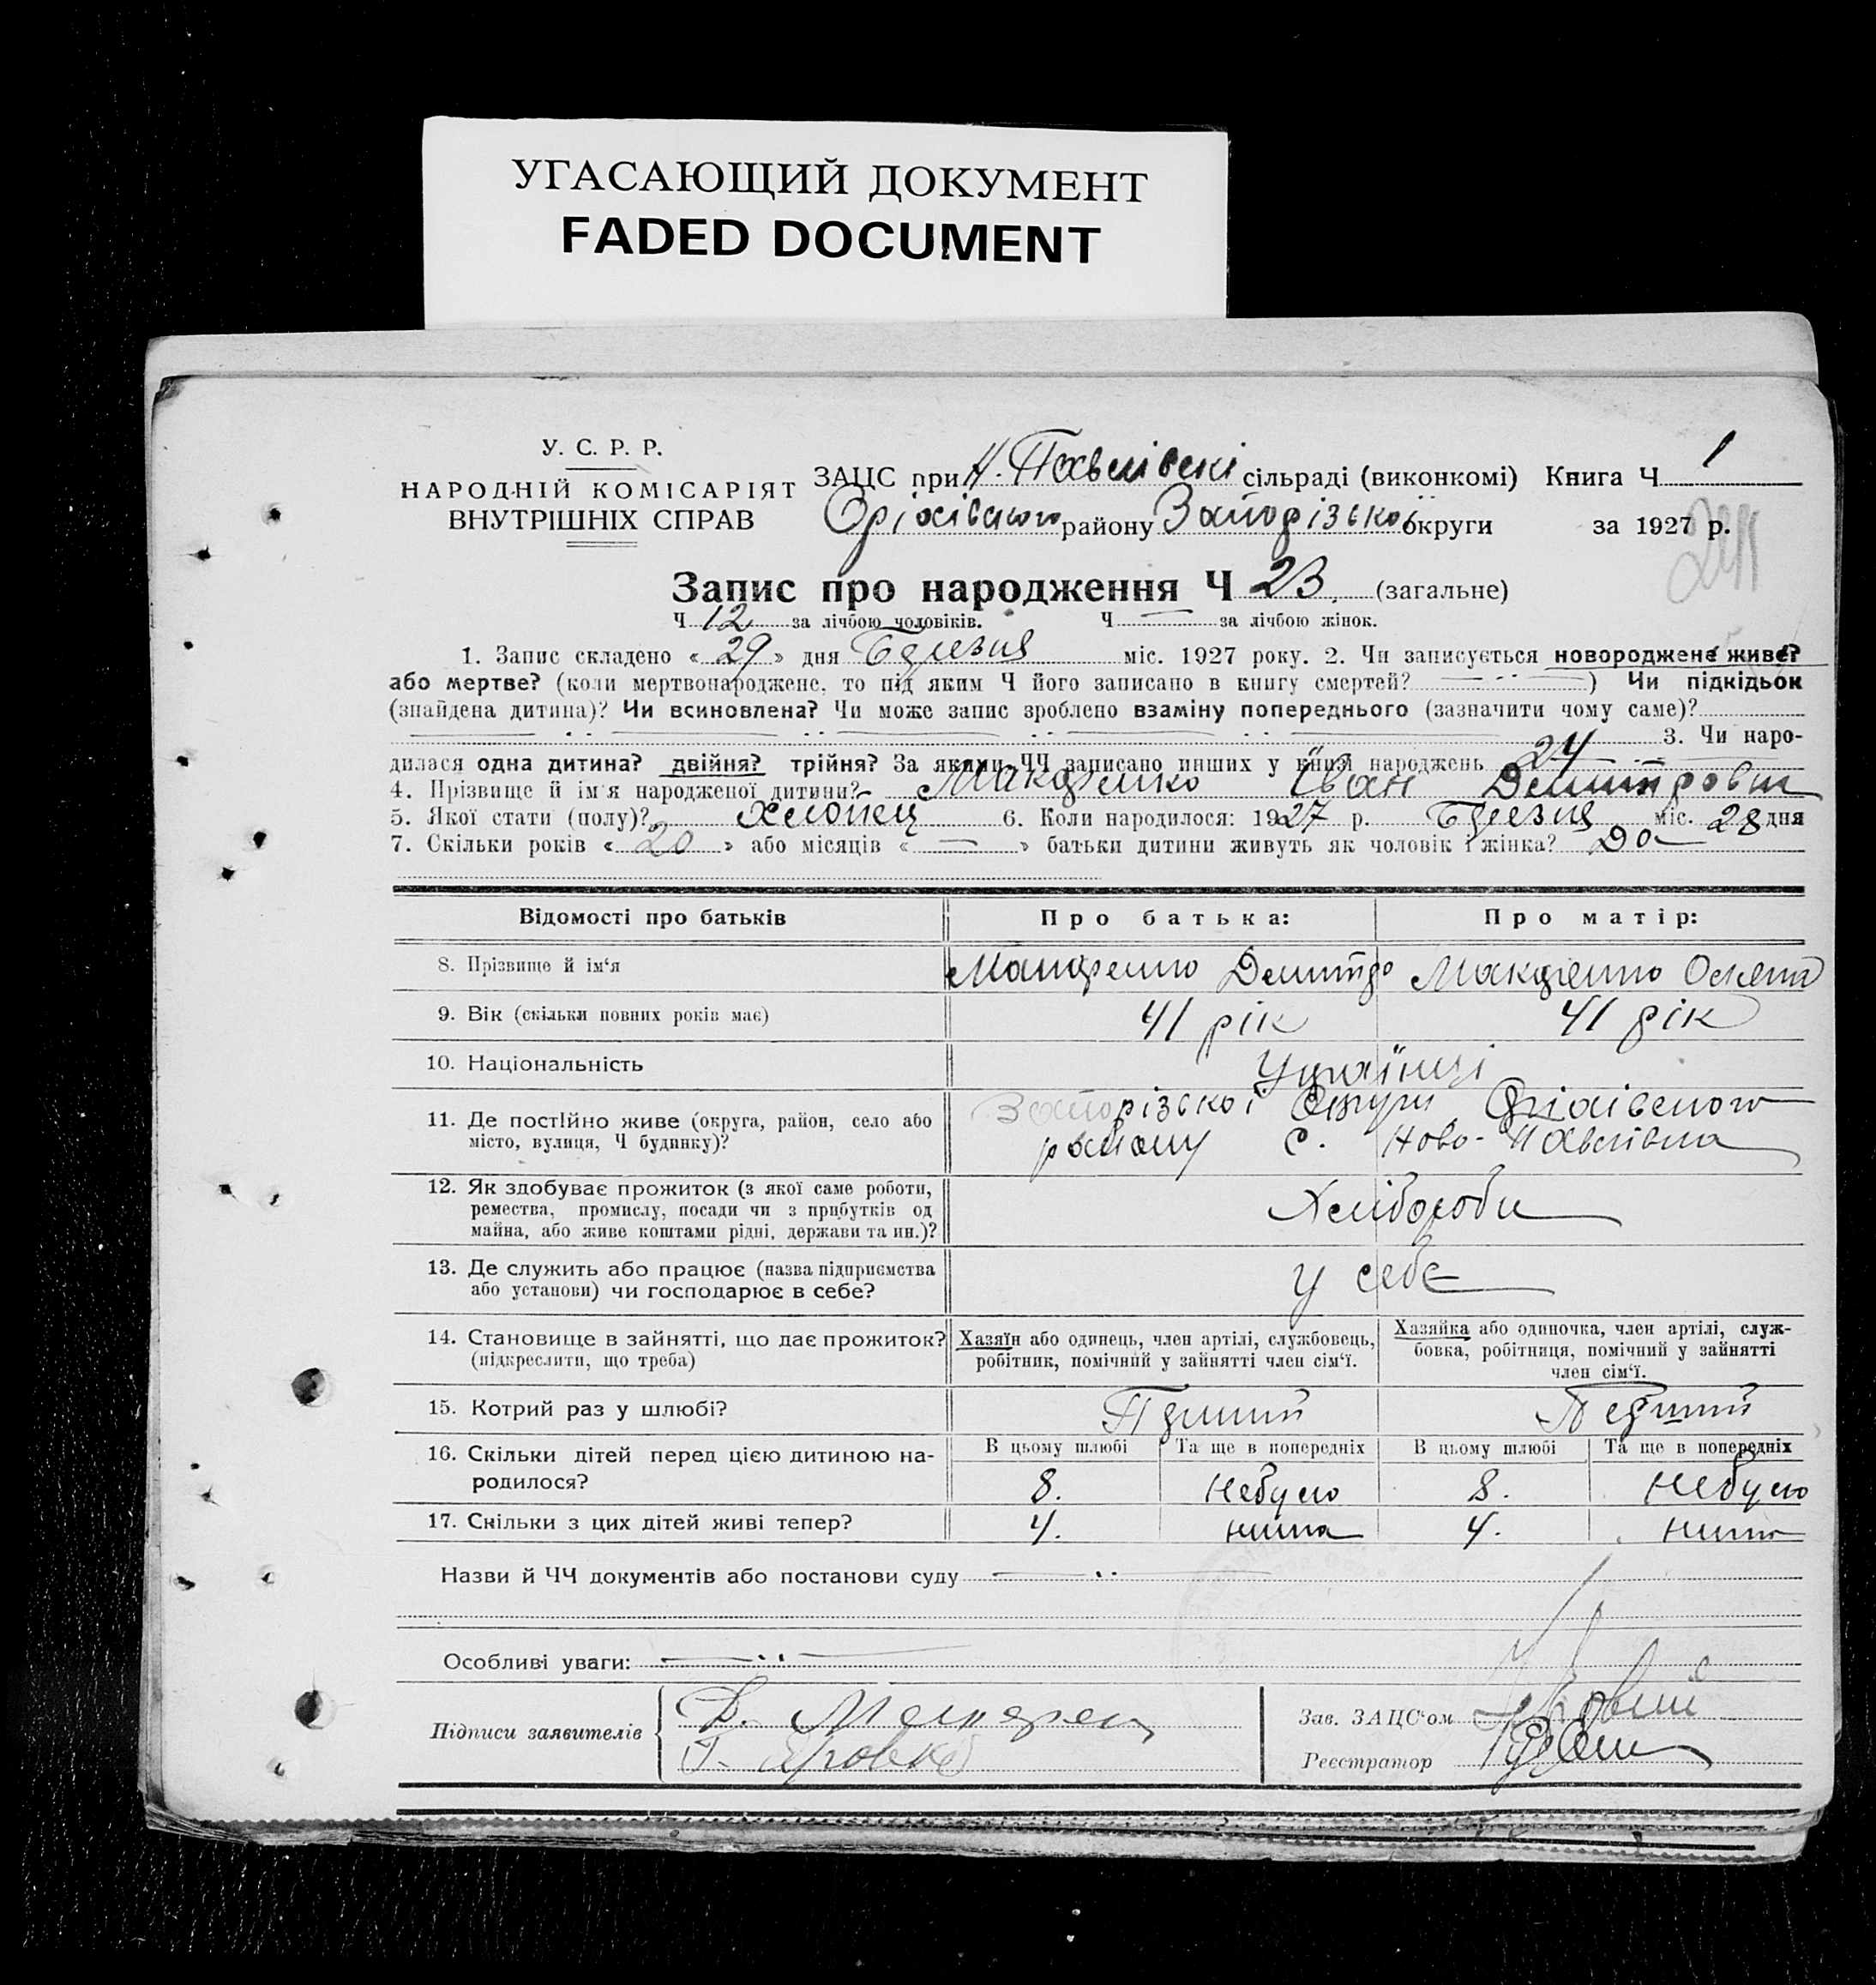 УГАСАЮЩИЙ ДОКУМЕНТ
FADED DOCUMENT
У. С. Р. Р.
НАРОДНІЙ КОМІСАРІЯТ
ВНУТРІШНІХ СПРАВ
ЗАЦС при Н. Павлівскі сільраді (виконкомі) Книга Ч 1
Оріхівского району Запорізької округи за 1927 р.
Запис про народження Ч 23. (загальне)
Ч 12 за лічбою чоловіків. Ч — за лічбою жінок.
1. Запис складено « 29 » дня Березня міс. 1927 року. 2. Чи записується новороджене живе?
або мертве? (коли мертвонароджене, то під яким Ч його записано в книгу смертей?) Чи підкідьок
(знайдена дитина)? Чи всиновлена? Чи може запис зроблено взаміну попереднього (зазначити чому саме)?
3. Чи наро-
дилася одна дитина? двійня? трійня? За якими ЧЧ записано инших у книзі народжень 24
4. Прізвище й ім'я народженої дитини? Макаренко Іван Дмитрович
5. Якої стати (полу)? Хлопец 6. Коли народилося: 1927 р. Березня міс. 28 дня
7. Скільки років « 20 » або місяців « — » батьки дитини живуть як чоловік і жінка?
Відомості про батьків Про батька: Про матір:
8. Прізвище й ім'я Макаренко Дмитро Макаренко
9. Вік (скільки повних років має) 41 рік 41 рік
10. Національність Українці
11. Де постійно живе (округа, район, село або
місто, вулиця, Ч будинку)?
Запорізької Округи Оріхівского
району с. Ново-Павлівка
12. Як здобуває прожиток (з якої саме роботи,
ремества, промислу, посади чи з прибутків од
майна, або живе коштами рідні, держави та ин.)?
Хлібороби
13. Де служить або працює (назва підприємства
або установи) чи господарює в себе?
у себе
14. Становище в зайнятті, що дає прожиток?
(підкреслити, що треба)
Хазяїн або одинець, член артілі, службовець,
робітник, помічний у зайнятті член сім'ї.
Хазяйка або одиночка, член артілі, служ-
бовка, робітниця, помічний у зайнятті
член сім'ї.
15. Котрий раз у шлюбі? Перший Перший
16. Скільки дітей перед цією дитиною на-
родилося?
В цьому шлюбі Та ще в попередніх В цьому шлюбі Та ще в попередніх
8. небуло 8. небуло
17. Скільки з цих дітей живі тепер? 4. нима 4. нима
Назви й ЧЧ документів або постанови суду
Особливі уваги:
Підписи заявителів
Зав. ЗАЦС'ом
Реєстратор